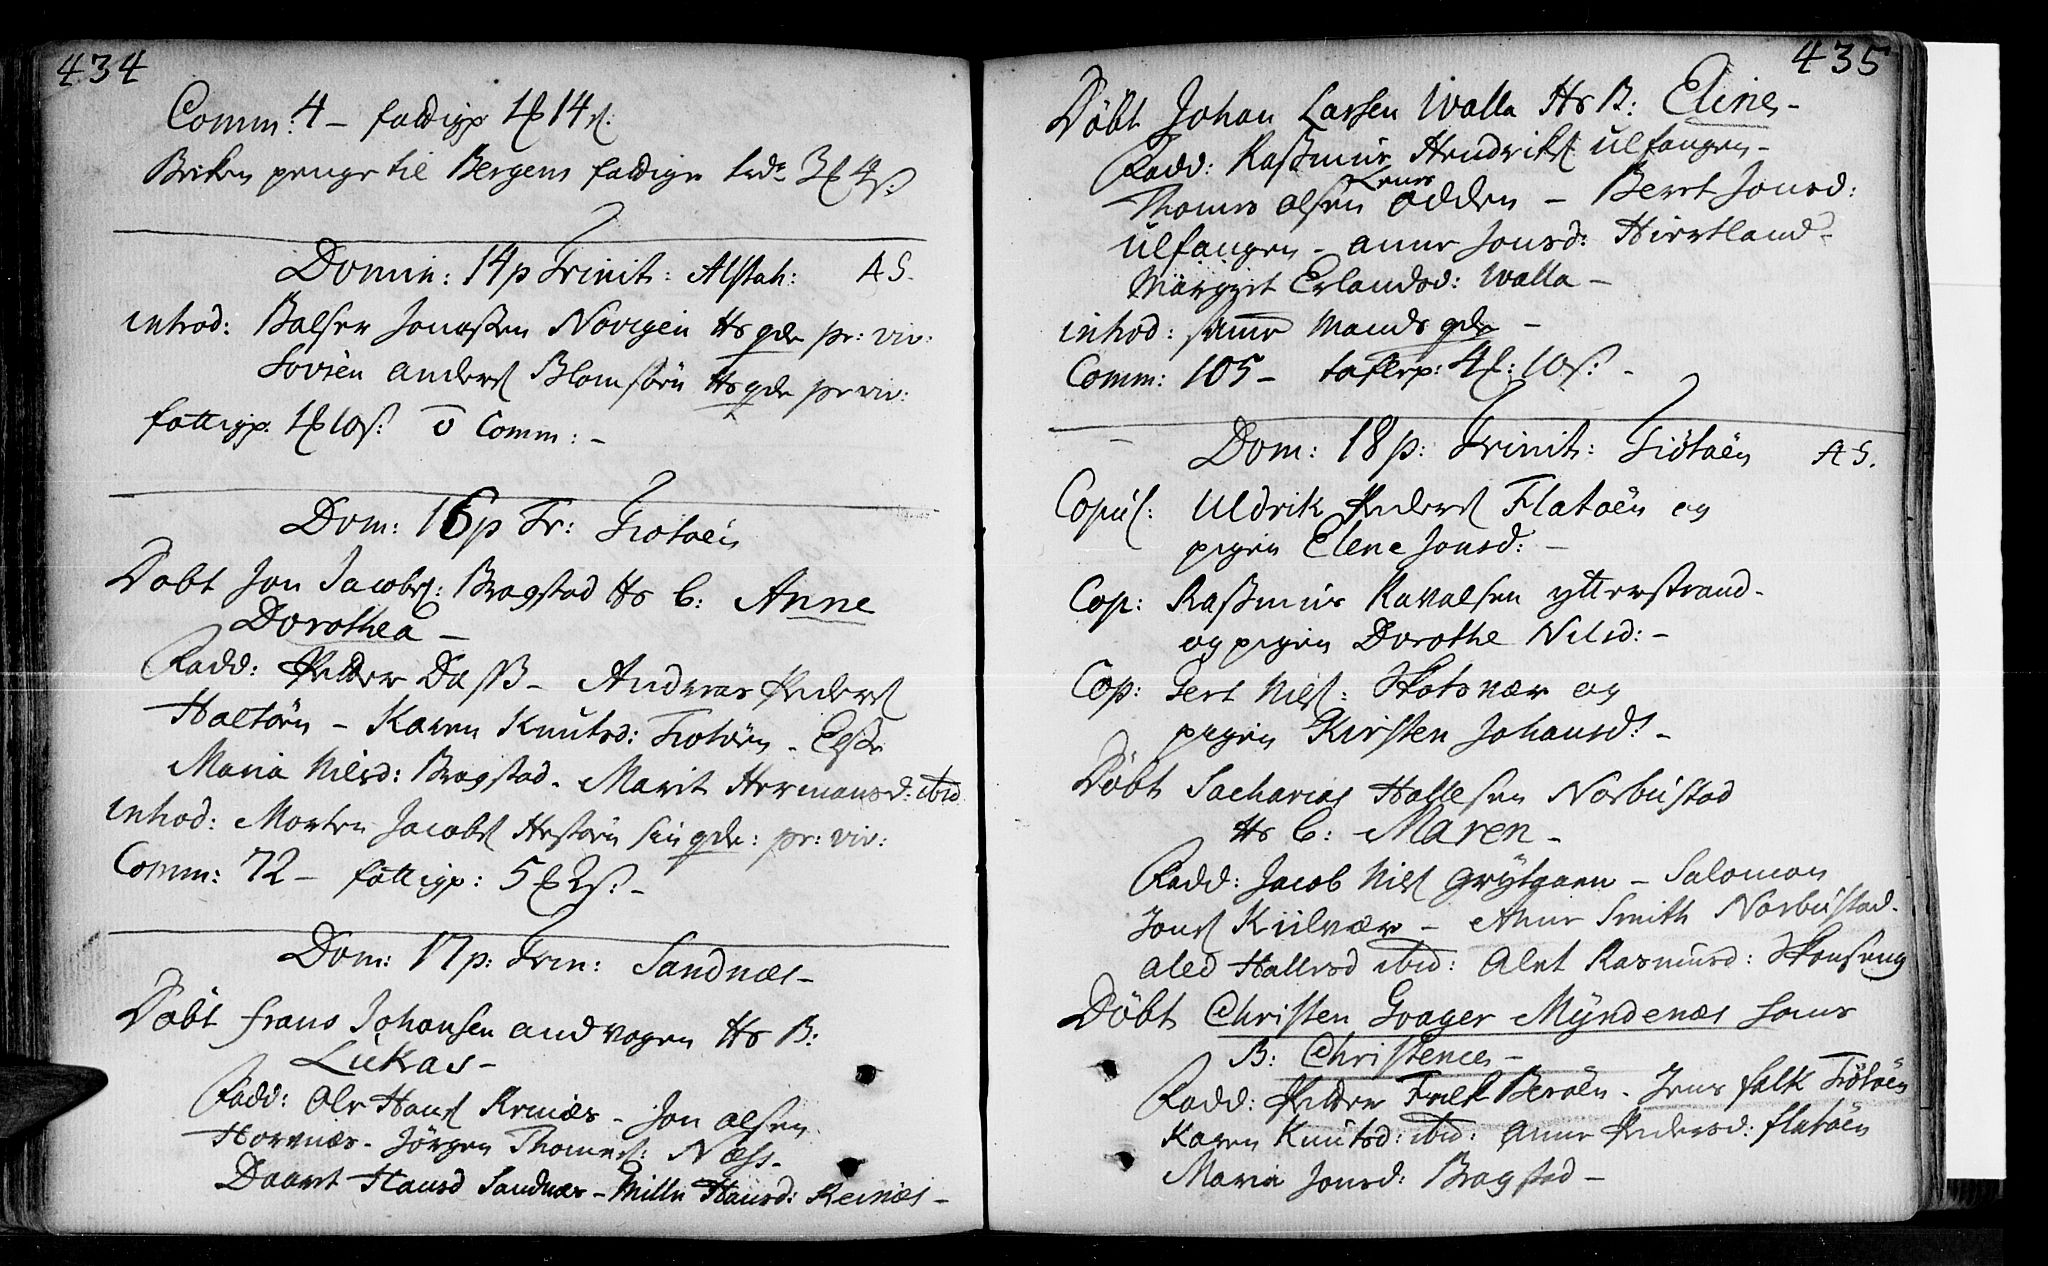 434
Comm: 4 – fattigp 14
penge til Bergens fattige
Domin: 14 p Trinit: Alstah: A S.
introd: Balser Jonassen Novigen Hs qde pr: viv:
Sovien Anders Blomsøen Hs qde pr viv:
fattigp. 10 ß: Comm: –
Dom: 16 p Tr: Tiøtøen
Døbt Jon Jacobs: Bragstad Hs B: Anne
Dorothea –
Fadd: Petter Dass – Andreas Peders
– Karen Knutsd: Tiøtøen – Else
Maria Nilsd: Bragstad – Marit Hermansd: ibid
introd: Morten Jacobs Hestøen sin qde: pr: viv:
Comm: 72 – fattigp: 5 2 ß: –
Dom: 17 p: Trin: Sandnæs –
Døbt Frans Johansen Andvogen Hs B:
Lukas –
Fadd: Ole Hans Reinæs – Jon Olsen
Horvnæs – Jørgen Thomes: Næss –
Daaret Hansd Sandnæs – Mille Hansd: Reinæs –
435
Døbt Johan Larsen Walla Hs B: Eline –
Fadd: Rasmus Hendriks Ulfangen –
Thomes Olsen Odden – Beret Jonsd:
Ulfangen – Anne Jonsd: Hiertland –
Margret Erlandsd: Walla –
introd: samme Mands qde –
Comm: 105 – taflep: 4 : 10 ß: –
Dom: 18 p: Trinit: Tiøtøen A S.
Copul: Uldrik Peders Flatøen og
pigen Elene Jonsd: –
Cop: Rasmus Kavalsen Ytterstrand –
og pigen Dorothe Nilsd: –
Cop: Gert Nils: Skotsvær og
pigen Kirsten Johansd: –
Døbt Sacharias Hallesen Norbustad
Hs B: Maren –
Fadd: Jacob Nils Grytgaen – Salomon
Jons Kiilvær – Anne Smith Norbustad –
Aled Hallesd ibid: Alet Rasmusd: Skonseng
Døbt Christen Gvager Myndenæs hans
B: Christence –
Fadd: Petter Falk Berøen – Jens Falk Tiøtøen
Karen Knutsd: ibid: Anne Pedersd: Flatøen
Maria Jonsd: Bragstad –